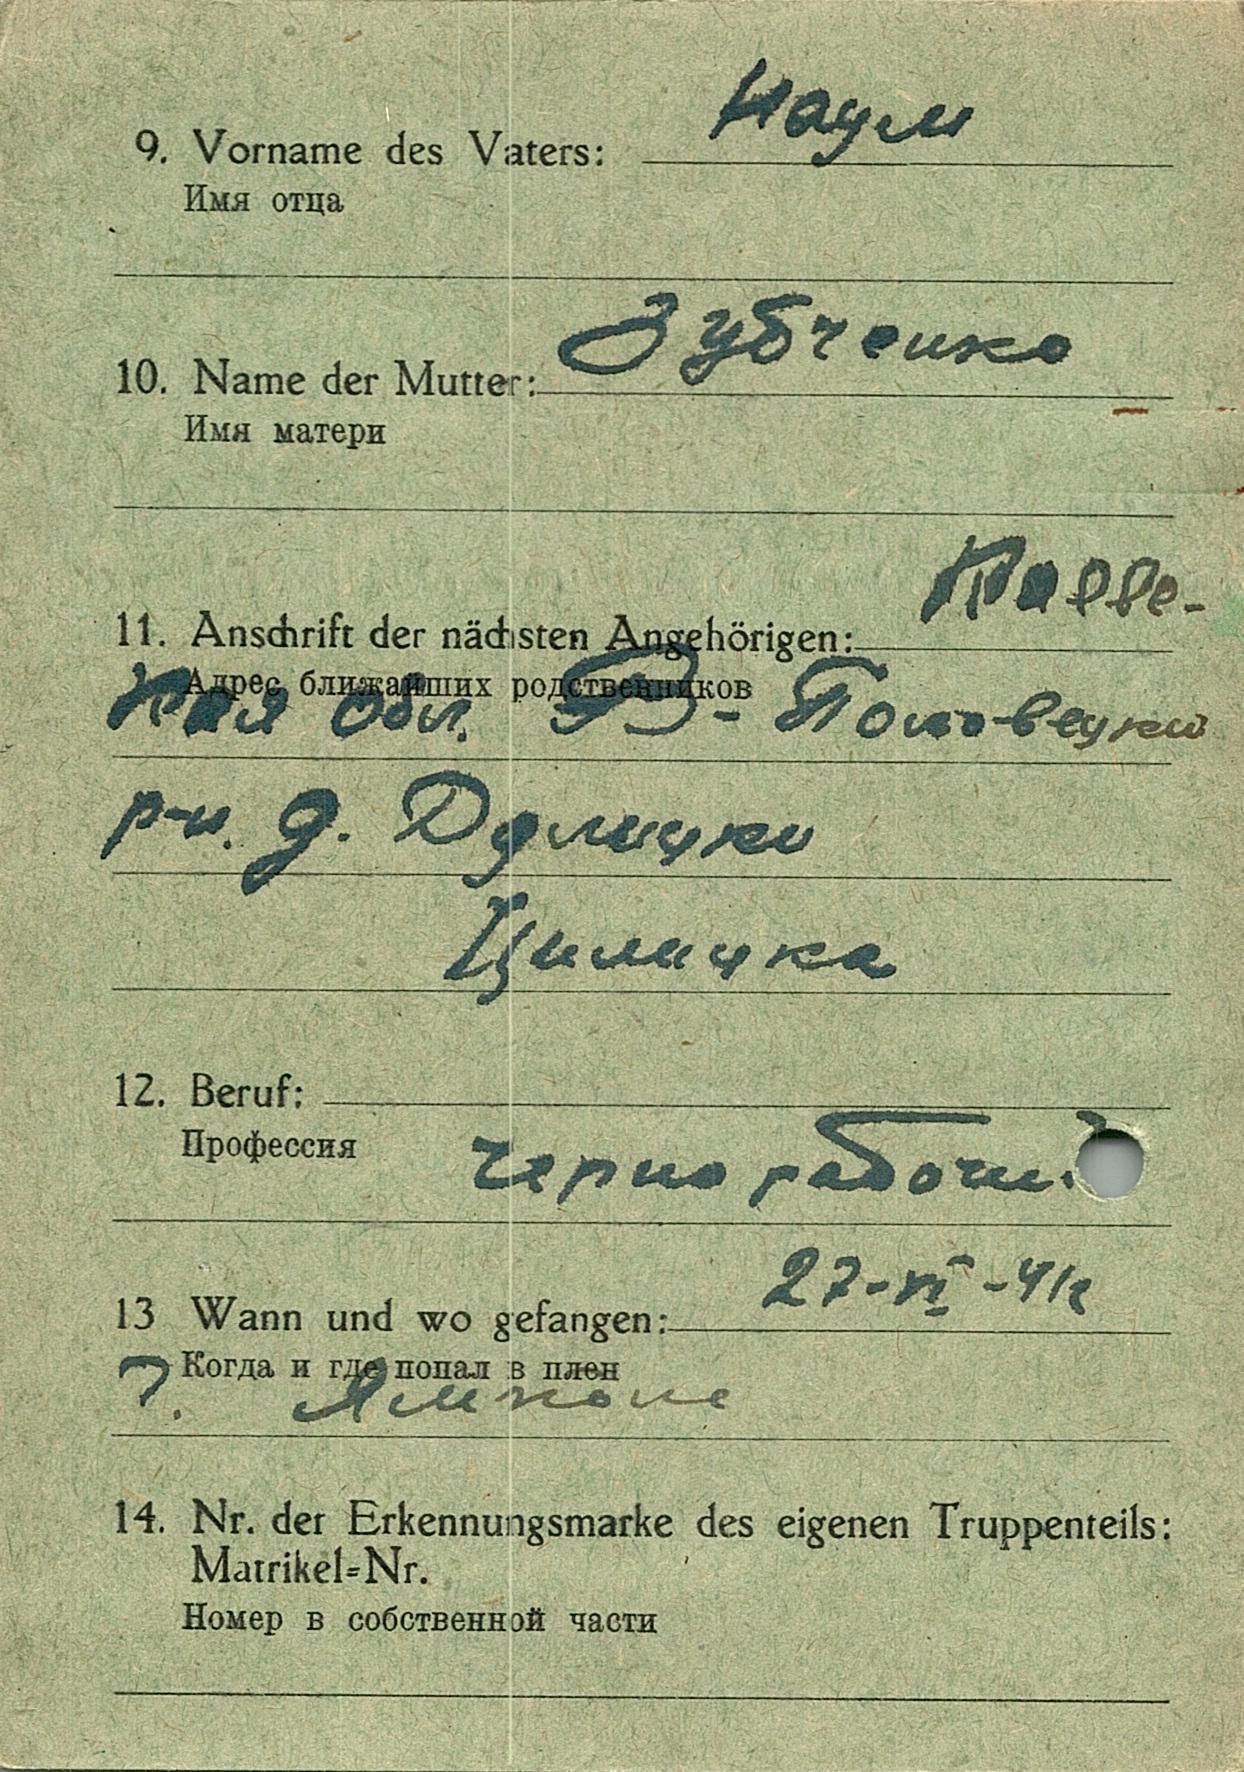 9. Vorname des Vaters: Наум
Имя отца
10. Name der Mutter: Зубченко
Имя матери
11. Anschrift der nächsten Angehörigen:
Адрес ближайших родственников
кая обл.
р-н. д.
12. Beruf:
Профессия
чернорабочи
13 Wann und wo gefangen: 27-VI-41г
Когда и где попал в плен
г. Ямполе
14. Nr. der Erkennungsmarke des eigenen Truppenteils:
Matrikel=Nr.
Номер в собственной части